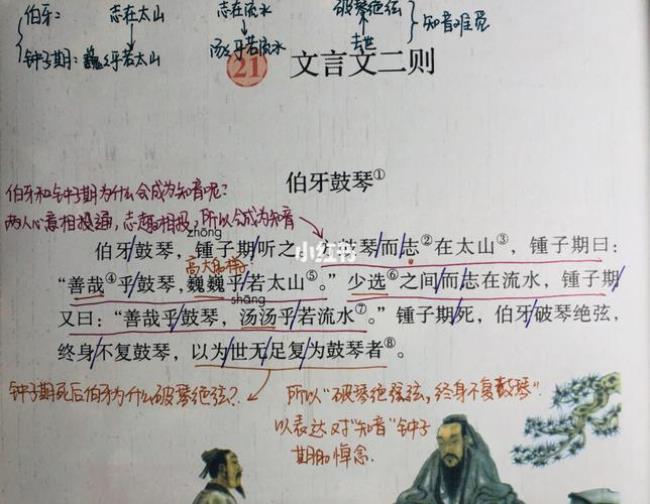 伯牙: 志在太山 志在流水 破琴绝弦
知音难觅
钟子期: 巍巍乎若太山 汤汤乎若流水 去世
21 文言文二则
伯牙鼓琴①
伯牙和钟子期为什么会成为知音呢?
两人心意相通,志趣相投,所以会成为知音
zhōng
伯牙鼓琴,锺子期听之。方鼓琴而志②在太山③,锺子期曰:
小红书
“善哉④乎鼓琴,巍巍乎若太山⑤。”少选⑥之间而志在流水,锺子期
shāng
又曰:“善哉乎鼓琴,汤汤乎若流水⑦。”锺子期死,伯牙破琴绝弦,
终身不复鼓琴,以为世无足复为鼓琴者⑧。
钟子期死后伯牙为什么破琴绝弦?
所以“破琴绝弦,终身不复鼓琴”
以表达对“知音”钟子
期的悼念.